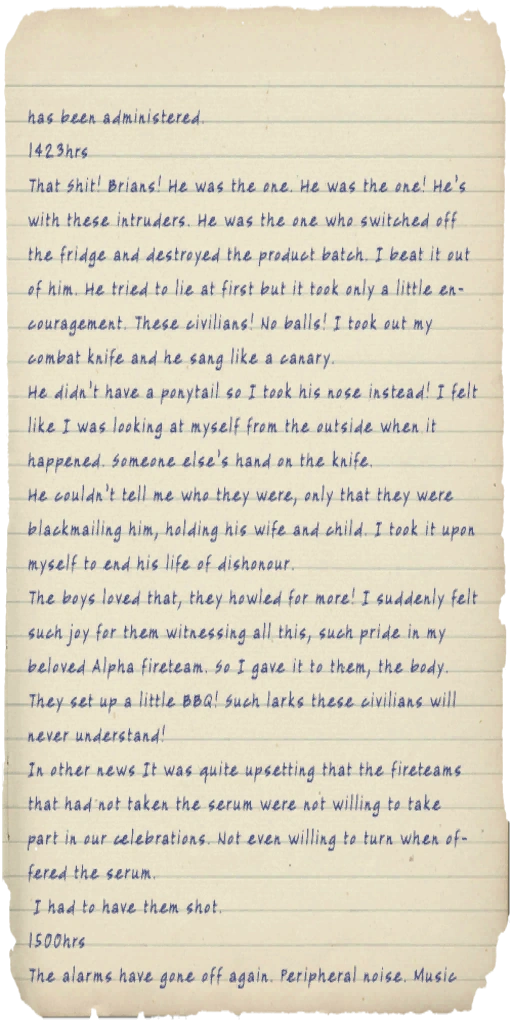 has been administered.
1423hrs
That shit! Brians! He was the one. He was the one! He's
with these intruders. He was the one who switched off
the fridge and destroyed the product batch. I beat it out
of him. He tried to lie at first but it took only a little en-
couragement. These civilians! No balls! I took out my
combat knife and he sang like a canary.
He didn't have a ponytail so I took his nose instead! I felt
like I was looking at myself from the outside when it
happened. Someone else's hand on the knife.
He couldn't tell me who they were, only that they were
blackmailing him, holding his wife and child. I took it upon
myself to end his life of dishonour.
The boys loved that, they howled for more! I suddenly felt
such joy for them witnessing all this, such pride in my
beloved Alpha fireteam. So I gave it to them, the body.
They set up a little BBQ! Such larks these civilians will
never understand!
In other news It was quite upsetting that the fireteams
that had not taken the serum were not willing to take
part in our celebrations. Not even willing to turn when of-
fered the serum.
I had to have them shot.
1500hrs
The alarms have gone off again. Peripheral noise. Music